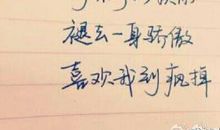 褪去一身骄傲
喜欢我到疯掉